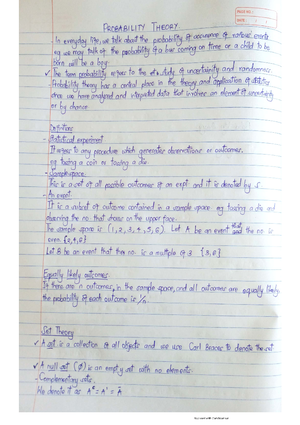 PROBABILITY THEORY
In everyday life, we talk about the probability of occurance of various events
eg we may talk of the probability of a bus coming on time or a child to be
born will be a boy.
✓ The term probability refers to the study of uncertainty and randomness
Probability theory has a central place in the theory and application of
since we have analysed and data that involves an element of uncertainty
or by chance
Definitions
- Statistical experiment
It refers to any procedure which generates observations or outcomes.
eg tossing a coin or tossing a die
- Sample space
This is a set of all possible outcomes of an expt and it is denoted by S
- An event
It is a subset of outcome contained in a sample space eg tossing a die and
observing the no. that shows on the upper face.
The sample space is (1, 2, 3, 4, 5, 6) Let A be an event that the no. is
even {2, 4, 6}
Let B be an event that the no. is a multiple of 3 {3, 6}
Equally likely outcomes
If there are n outcomes, in the sample space, and all outcomes are equally likely
the probability of each outcome is 1/n.
Set Theory
✓ A set is a collection of all objects and we use Curl Braces to denote the set
✓ A null set (∅) is an empty set with no elements
- Complementary sets
We denote it as